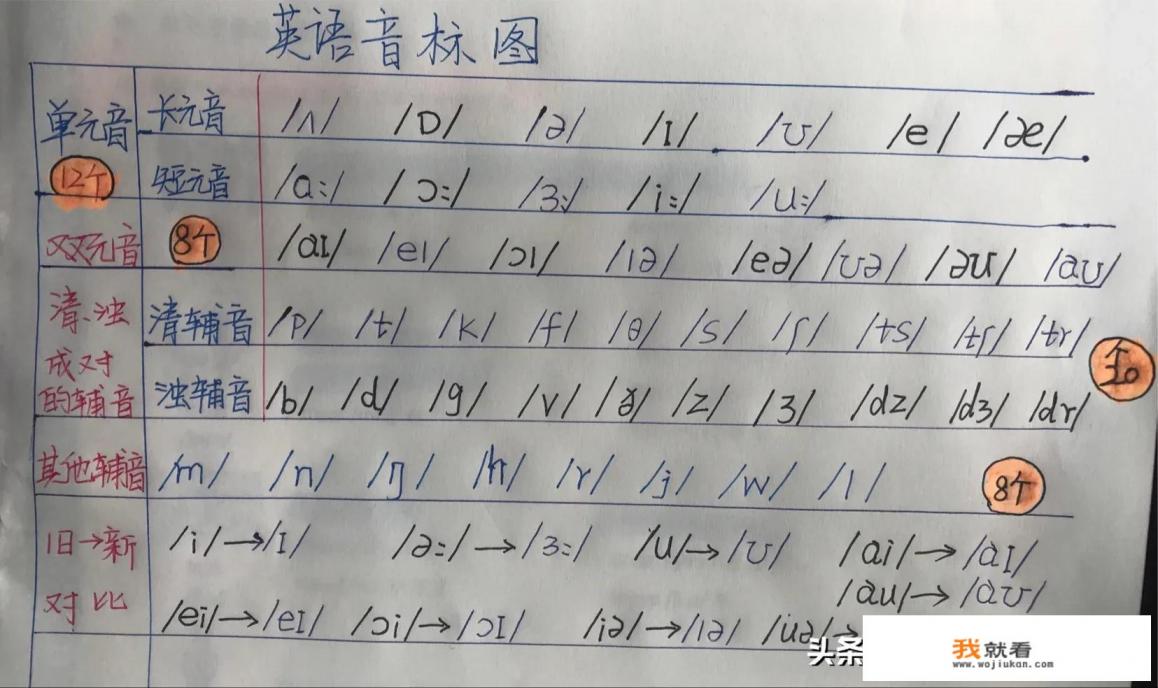 英语音标图
单元音 长元音 /ʌ/ /ɒ/ /ə/ /ɪ/ /ʊ/ /e/ /æ/
12个 短元音 /ɑː/ /ɔː/ /ɜː/ /iː/ /uː/
双元音 8个 /aɪ/ /eɪ/ /ɔɪ/ /ɪə/ /eə/ /ʊə/ /əʊ/ /aʊ/
清、浊成对的辅音 清辅音 /p/ /t/ /k/ /f/ /θ/ /s/ /ʃ/ /ts/ /tʃ/ /tr/
10个
浊辅音 /b/ /d/ /g/ /v/ /ð/ /z/ /ʒ/ /dz/ /dʒ/ /dr/
其他辅音 /m/ /n/ /ŋ/ /h/ /r/ /j/ /w/ /l/ 8个
旧→新对比 /i/→/ɪ/ /əː/→/ɜː/ /u/→/ʊ/ /ai/→/aɪ/
/au/→/aʊ/
/ei/→/eɪ/ /ɔi/→/ɔɪ/ /iə/→/ɪə/ /uə/→
头条
我就看
www.wojiukan.com